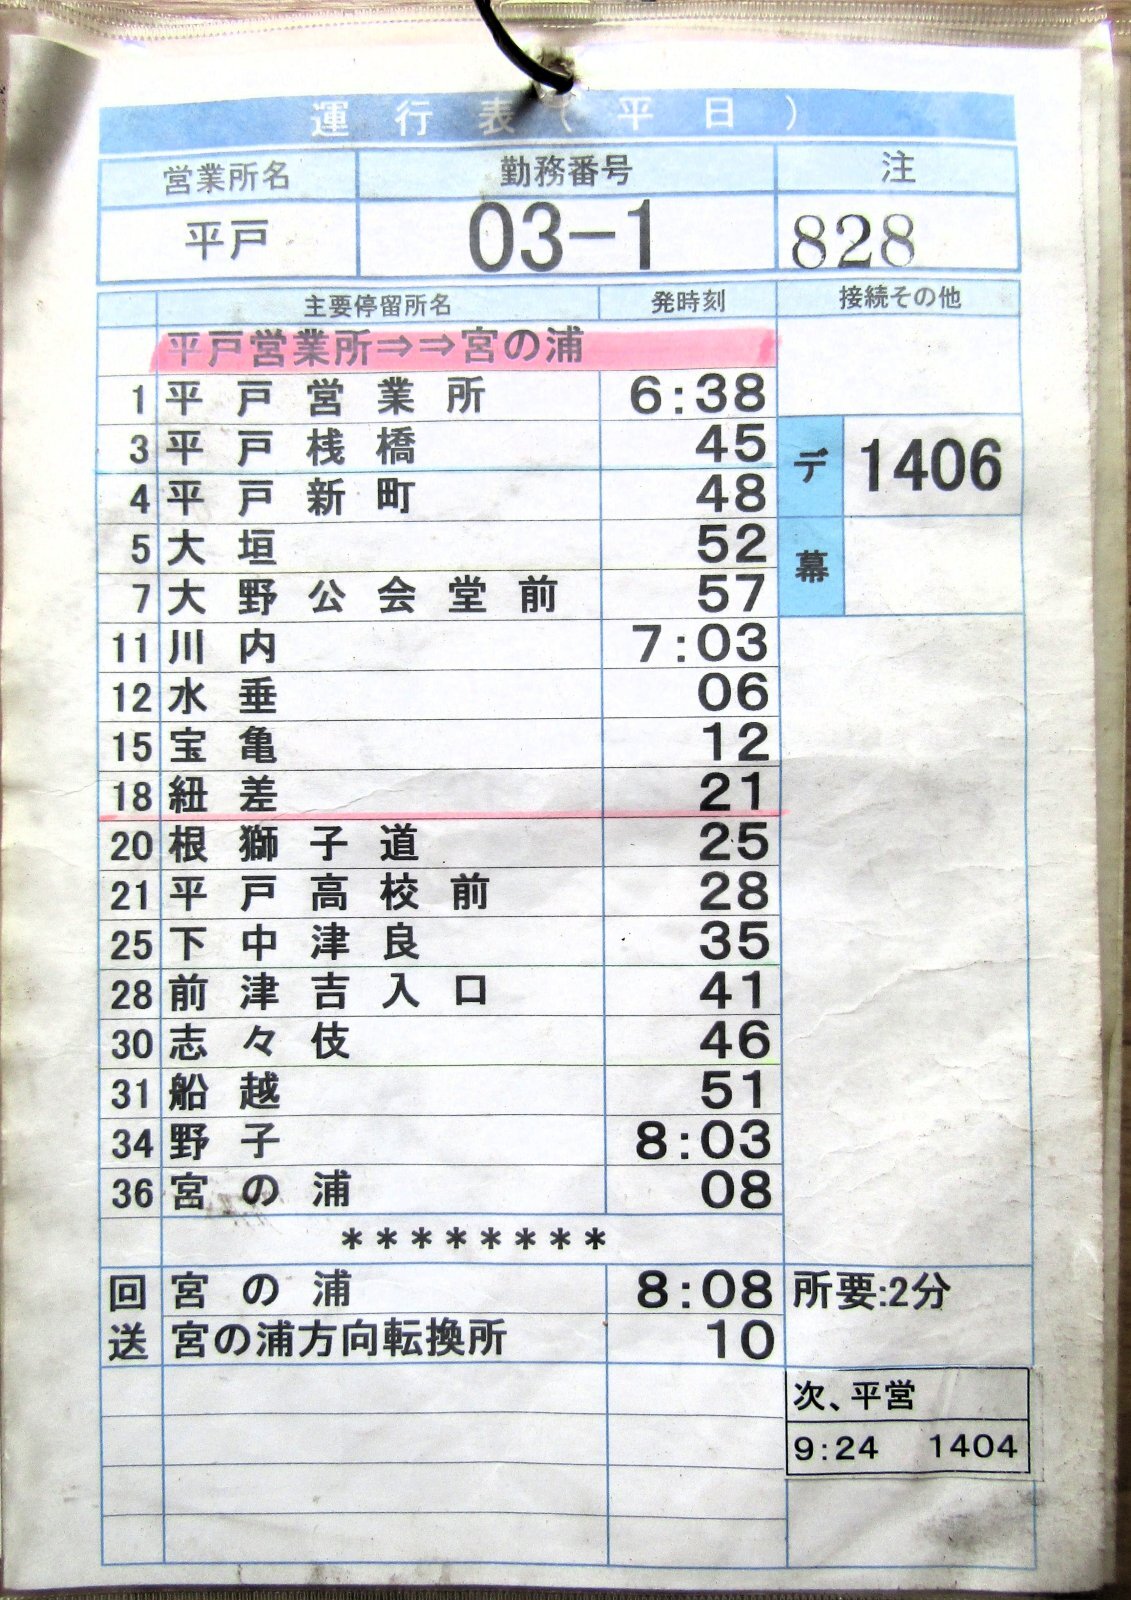 運行表(平日)
営業所名 勤務番号 注
平戸 03-1 828
主要停留所名 発時刻 接続その他
平戸営業所⇒⇒宮の浦
1 平戸営業所 6:38
3 平戸桟橋 45 デ 1406
4 平戸新町 48
5 大垣 52 幕
7 大野公会堂前 57
11 川内 7:03
12 水垂 06
15 宝亀 12
18 紐差 21
20 根獅子道 25
21 平戸高校前 28
25 下中津良 35
28 前津吉入口 41
30 志々伎 46
31 船越 51
34 野子 8:03
36 宮の浦 08
********
回 宮の浦 8:08 所要:2分
送 宮の浦方向転換所 10
次、平営
9:24 1404